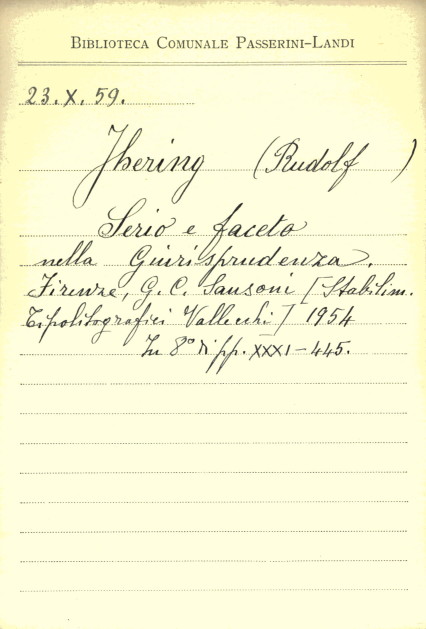 BIBLIOTECA COMUNALE PASSERINI-LANDI
23.X.59.
Jhering (Rudolf )
Serio e faceto
nella Giurisprudenza.
Firenze, G. C. Sansoni [Stabilim.
Tipolitografici Vallecchi] 1954
In 8° di pp. XXXI-445.